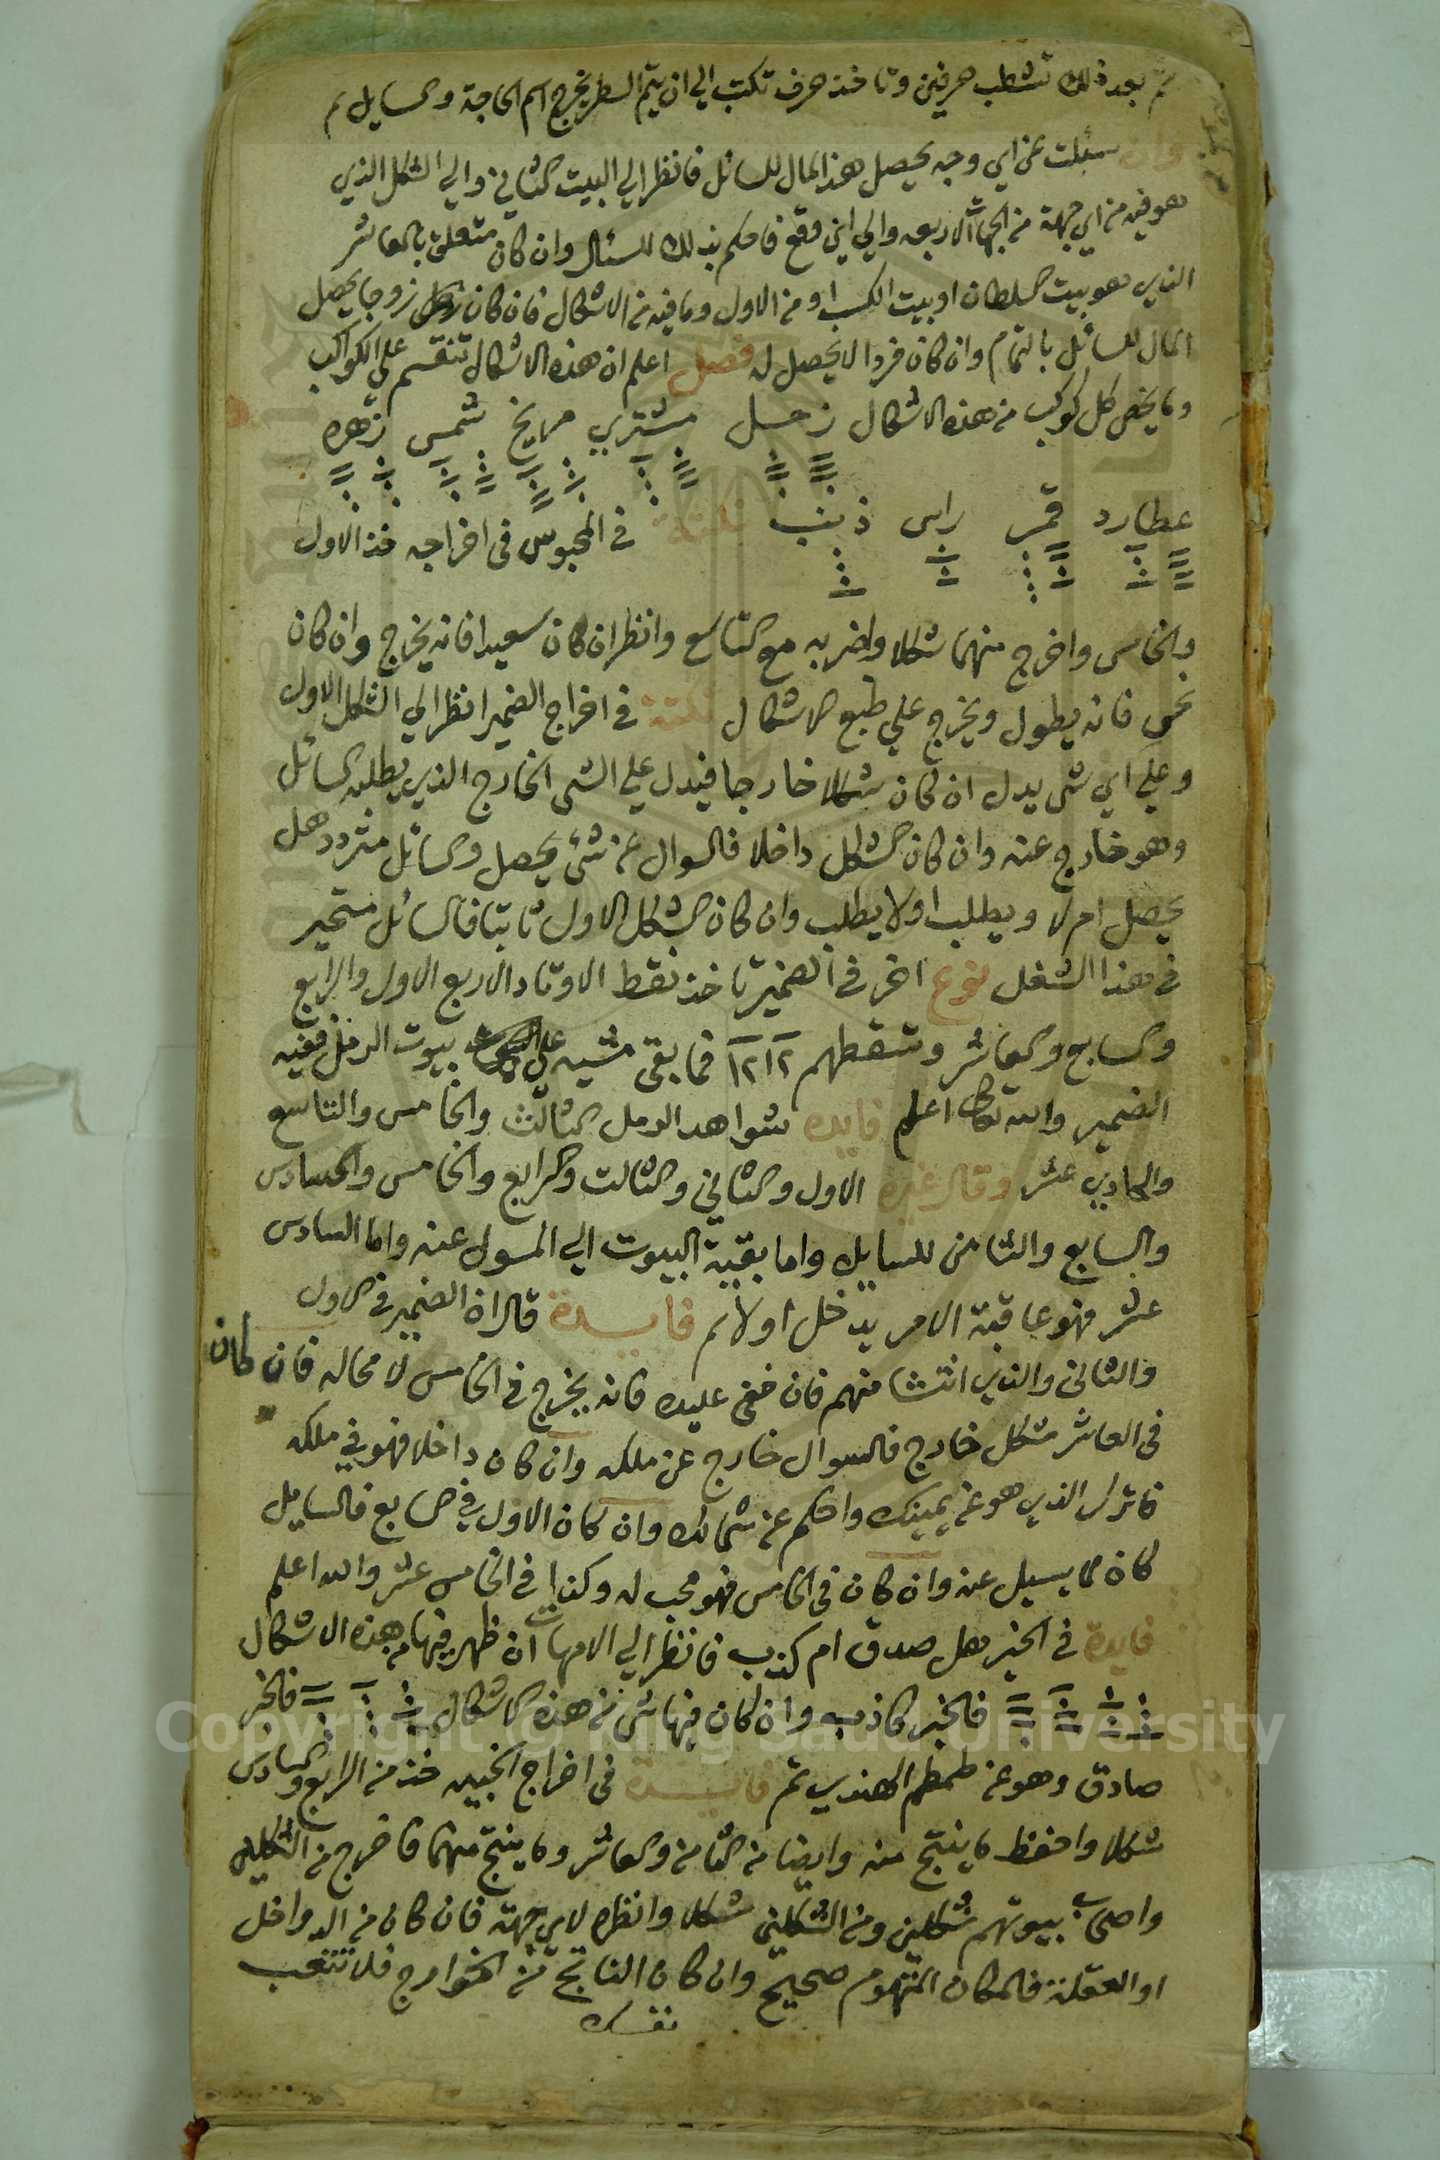 ثم بعد ذلك تشطب حرفين وتاخذ حرف تكتب الي ان يتم السطر يخرج اسم الحاجة والسايل تم
وان سئلت عن اي وجه يحصل هذا المال للسائل فانظر الي البيت الثاني والي الشكل الذي
هو فيه من اي جهة من الجهات الاربعه والي اين وقع فاحكم بذلك للسئال وان كان متعلق بالعاشر
الذي هو بيت السلطان او بيت الكسب او من الاول وما فيه من الاشكال فان كان زوجا يحصل
المال للسائل بالتمام وان كان فردا لا يحصل له فصل اعلم ان هذه الاشكال تنقسم علي الكواكب
وما يخص كل كوكب من هذه الاشكال زحل مشتري مريخ شمس زهره
عطارد قمر راس ذنب نكتة في المحبوس في اخراجه خذ الاول
والخامس واخرج منهما شكلا واضربه مع التاسع وانظر ان كان سعيدا فانه يخرج وان كان
نحس فانه يطول ويخرج علي طبع الاشكال نكتة في اخراج الضمير انظر الي الشكل الاول
وعلي اي شي يدل ان كان شكلا خارجا فيدل علي الشي الخارج الذي يطلبه السائل
وهو خارج عنه وان كان الشكل داخلا فالسوال عن شئ يحصل والسائل متردد هل
يحصل ام لا ويطلب او لا يطلب وان كان الشكل الاول ثابتا فالسائل متحير
في هذا الشغل نوع اخر في الضمير تاخذ نقط الاوتاد الاربع الاول والرابع
والسابع والعاشر وتسقطهم ١٢ ١٢ فما بقي مشيه علي بيوت الرمل ففيه
الضمير والله تعالى اعلم فايده شواهد الرمل الثالث والخامس والتاسع
والحادي عشر وقال غيره الاول والثاني والثالث والرابع والخامس والسادس
والسابع والثامن للسايل واما بقية البيوت الي المسول عنه واما السادس
عشر فهو عاقبة الامر يدخل اولا تم فايدة قال ان الضمير في الاول
والثاني والذي انتشا منهم فان خفي عليك فانه يخرج في الخامس لا محاله فان كان
في العاشر شكل خارج فالسوال خارج عن ملكه وان كان داخلا فهو في ملكه
فاترك الذي هو عن يمينك واحكم عن شمالك وان كان الاول في السابع فالسايل
كان لما يسيل عنه وان كان في الخامس فهو محب له وكذا في الخامس عشر والله اعلم
فايدة في الخبر هل صدق ام كذب فانظر الي الامهات ان ظهر فيها من هذه الاشكال
فالخبر كاذب وان كان فيها شي من هذه الاشكال فالخبر
صادق وهو عن طمطم الهندي تم فايدة في اخراج الخبيه خذ من الرابع والسادس
شكلا واحفظ ما ينتج منه وايضا من الثامن والعاشر وما ينتج منهما فاخرج من الشكلين
بيوتهم شكلين ومن الشكلين شكلا وانظره لاي جهة فان كان من الدواخل
او العقلة فالمكان المتهوم صحيح وان كان الناتج من الخوارج فلا تتعب
نفسك
Copyright © King Saud University